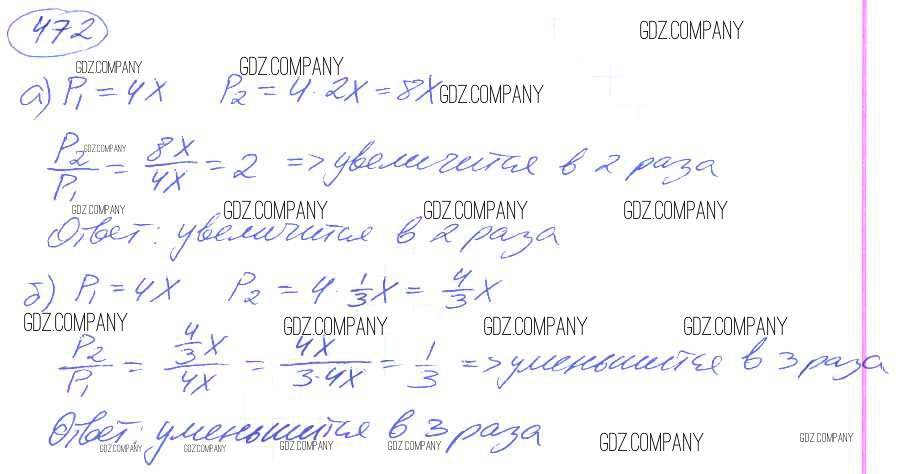 472
GDZ.COMPANY
GDZ.COMPANY GDZ.COMPANY
а) P₁ = 4x P₂ = 4·2x = 8x GDZ.COMPANY
P₂/P₁ = 8x/4x = 2 => увеличится в 2 раза
GDZ.COMPANY
GDZ.COMPANY GDZ.COMPANY GDZ.COMPANY GDZ.COMPANY
Ответ: увеличится в 2 раза
б) P₁ = 4x P₂ = 4·1/3x = 4/3x
GDZ.COMPANY GDZ.COMPANY GDZ.COMPANY GDZ.COMPANY
P₂/P₁ = 4/3x/4x = 4x/3·4x = 1/3 => уменьшится в 3 раза
Ответ: уменьшится в 3 раза
GDZ.COMPANY GDZ.COMPANY GDZ.COMPANY GDZ.COMPANY GDZ.COMPANY GDZ.COMPANY